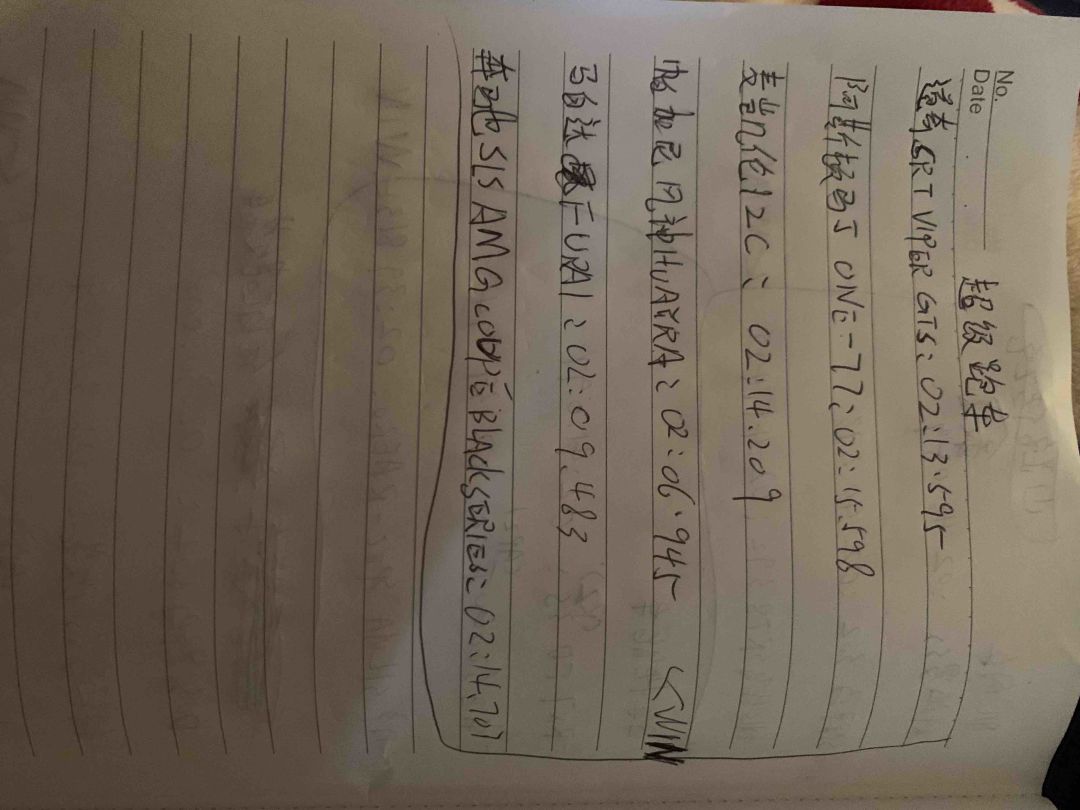 No.
Date
超级跑车
道奇SRT VIPER GTS: 02:13.595
阿斯顿马丁 ONE-77: 02:15.598
麦当凯伦12C: 02:14.209
帕加尼风神HUAYRA: 02:06.945 <WIN
马自达 FURAI: 02:09.483
奔驰SLS AMG COUPÉ BLACKSERIES: 02:14.701